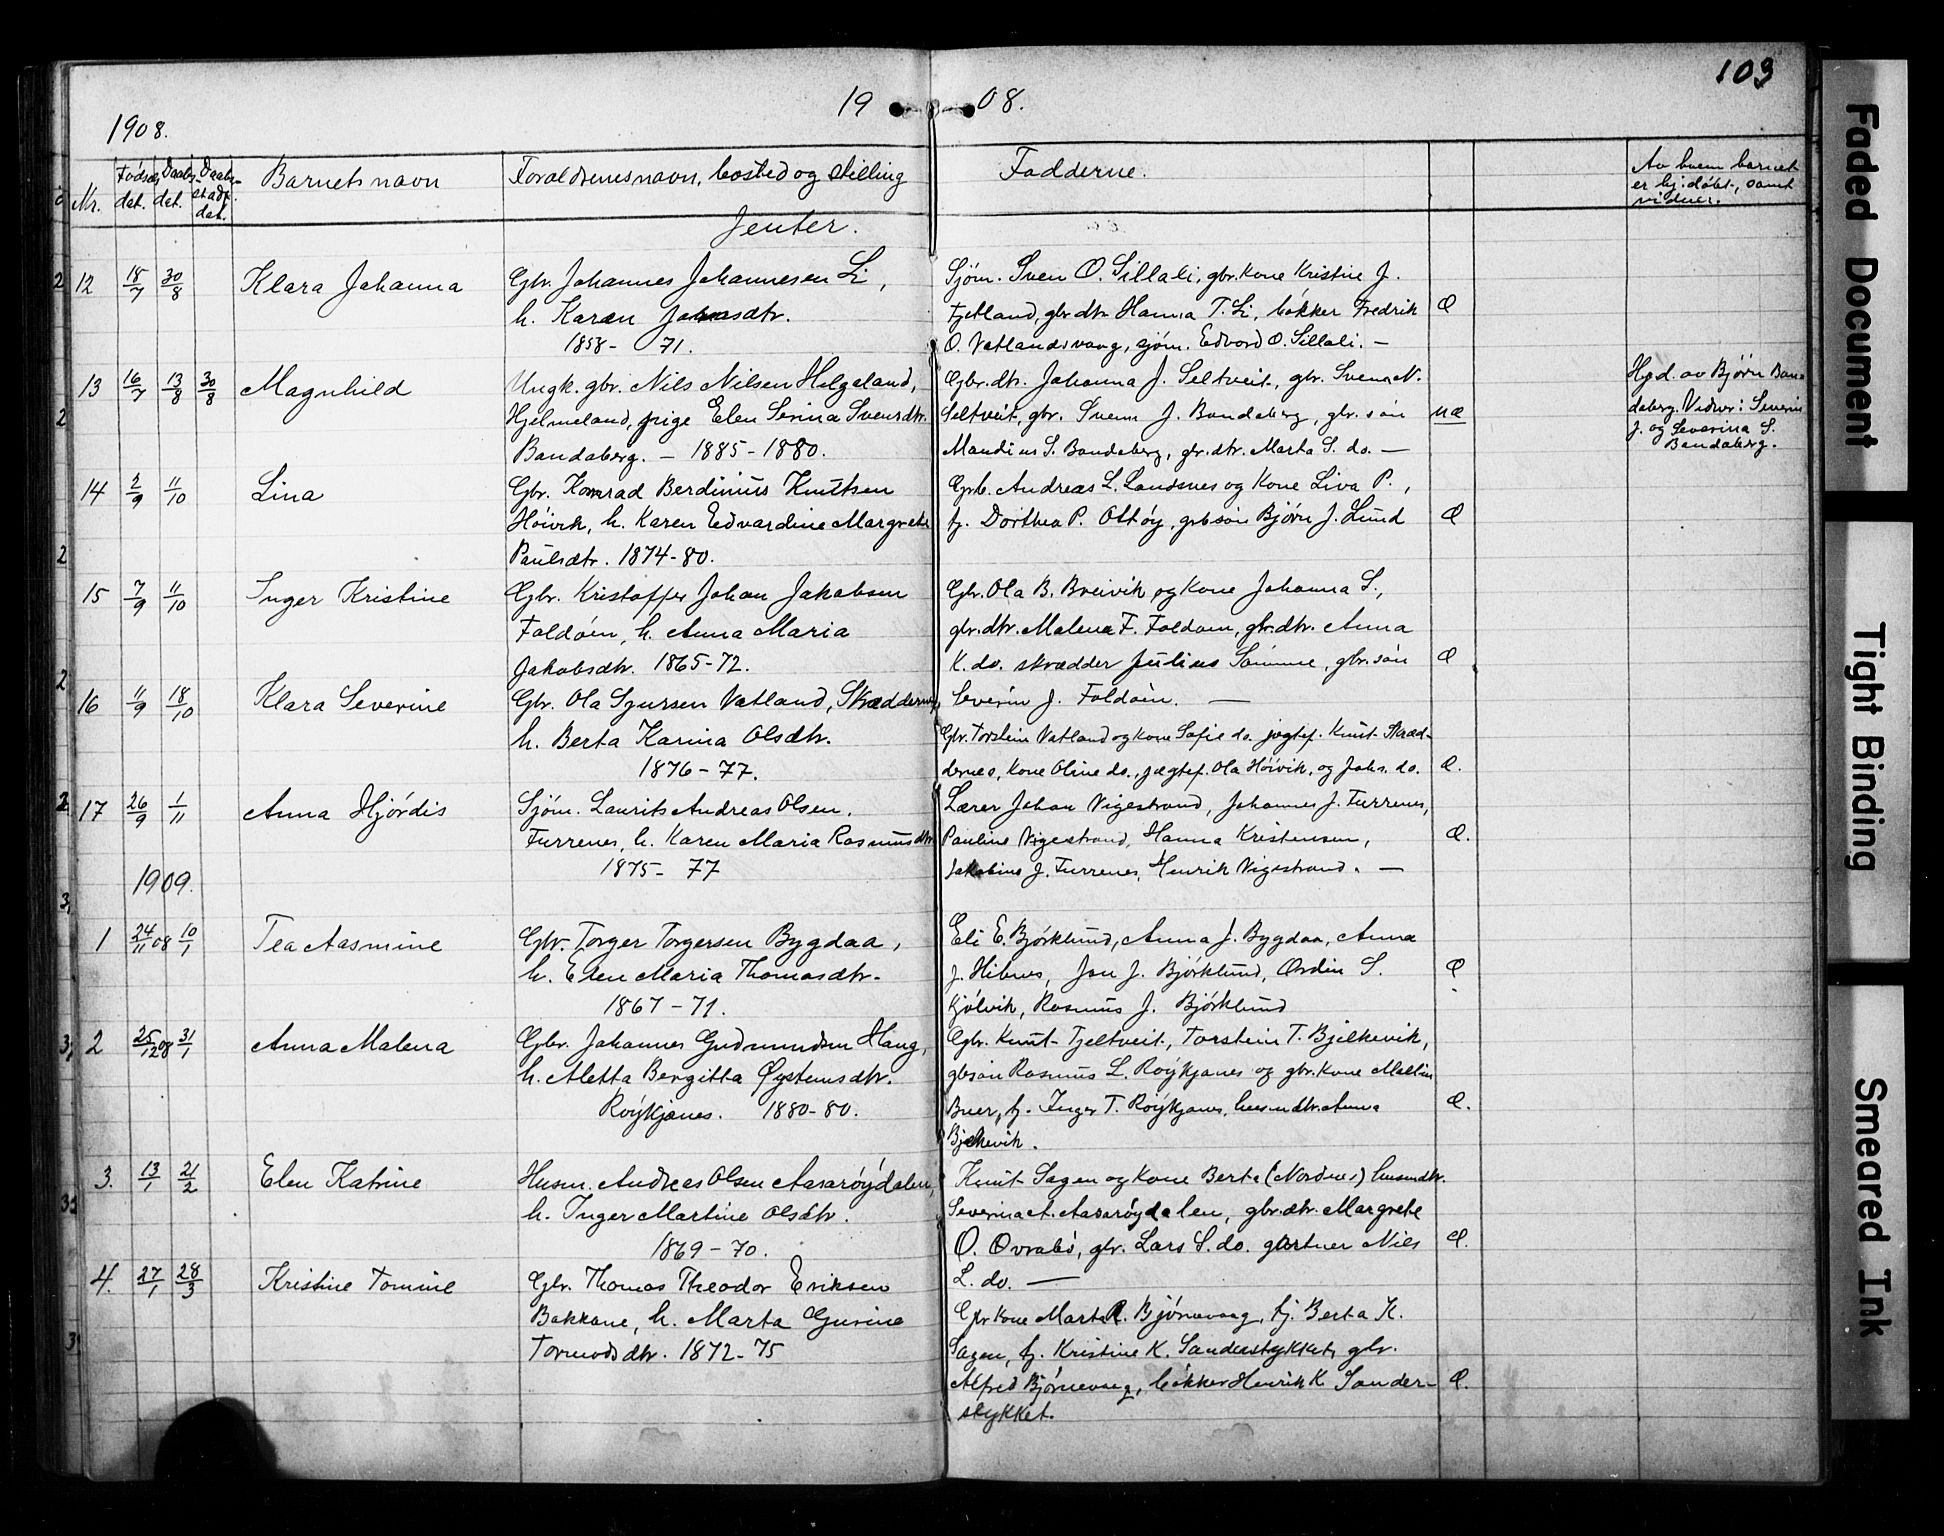 103
19 08.
1908.
Nr. Fødsels dat. Daabs dat. Daabs stadf. dat. Barnets navn Foraldrenes navn, bosted og stilling Fadderne. Av hvem barnet er hj.døbt, samt vidner.
Jenter.
12 18/7 30/8 Klara Johanna
Gbr. Johannes Johannesen Li,
h. Karen Johnsdtr.
1858 - 71.
Sjøm. Sven O. Sillali, gbr. kone Kristine J.
Fjetland, gbr dtr Hanna T. Li, bökker Fredrik Æ
O. Vatlandsvaag, sjøm. Edvard O. Sillali. —
13 16/7 13/8 30/8 Magnhild
Ungk. gbr. Nils Nilsen Helgeland,
Hjelmeland, pige Elen Serina Svensdtr.
Bandaberg. - 1885 - 1880.
Gbr. dtr. Johanna J. Seltveit, gbr. Svend N.
Seltveit, gbr. Svenn J. Bandaberg, gbr. sön uæ
Mandius S. Bandaberg, gbr. dtr. Marta S. do. —
Hjd. av Bjørn Banda
daberg. Vidner: Severin
J. og Severina S.
Bandaberg.
14 2/9 11/10 Lina
Gbr. Konrad Berdinius Knutsen
Höivik, h. Karen Edvardine Margrete
Paulsdtr. 1874-80.
Gbr. Andreas L. Landsnes og Kone Liva P.,
tj. Dorthea P. Ottöy, gbr sön Björn J. Lund Æ
15 7/9 11/10 Inger Kristine
Gbr. Kristoffer Johan Jakobsen
Foldöen, h. Anna Maria
Jakobsdtr. 1865-72.
Gbr. Ola B. Breivik og Kone Johanna S.,
gbr. dtr. Malena F. Foldöen, gbr. dtr. Anna
K. do. skrædder Julius Sömme, gbr. sön Æ
Severin J. Foldöen. —
16 11/9 18/10 Klara Severine
Gbr. Ola Sjursen Vatland, Skræddernes,
h. Berta Karina Olsdtr.
1876 - 77.
Gbr. Torstein Vatland og kone Sofie do. jægtef. Knut Skræd-
dernes, Kone Oline do., jægtef. Ola Höivik, og Johs. do. Æ.
17 26/9 1/11 Anna Hjördis
Sjöm. Laurits Andreas Olsen,
Furrenes, h. Karen Maria Rasmusdtr
1875 - 77
Lærer Johan Vigestrand, Johannes J. Furrenes,
Pauline Vigestrand, Hanna Kristensen, Æ.
Jakobine J. Furrenes, Henrik Vigestrand. —
1909.
1 24/11 08 10/1 Tea Aasmine
Gbr. Torger Torgersen Bygdaa,
h. Elen Maria Thomasdtr.
1867 - 71.
Eli E. Björklund, Anna J. Bygdaa, Anna
J. Hibnes, Jon J. Björklund, Ordin S. Æ
Kjölvik, Rasmus J. Björklund
2 25/12 08 31/1 Anna Malena
Gbr. Johannes Gudmundsen Haug,
h. Aletta Bergitta Øystensdtr.
Röykjanes. 1880-80.
Gbr. Knut Tjeltveit, Torstein T. Bjelkevik,
gbsön Rasmus L. Röykjanes og gbr. kone Mallin
Buer, tj. Inger T. Röykjanes, husmdtr. Anna Æ.
Bjelkevik.
3. 13/1 21/2 Elen Katrine
Husm. Andreas Olsen Aasaröydalen,
h. Inger Martine Olsdtr.
1869 - 70.
Knut Sagen og kone Berta (Nordnes) husmdtr.
Severina A. Aasaröydalen, gbr.dtr. Margrete
O. Ovrabö, gbr. Lars S. do. gartner Niels Æ.
L. do. —
4. 27/1 28/3 Kristine Tomine
Gbr. Thomas Theodor Eriksen
Bakkane, h. Marta Gurine
Tormodsdtr. 1872-75
Gbr kone Marta R. Björnevaag, tj. Berta K.
Sagen, tj. Kristine K. Sanderstykket, gbr.
Alfred Björnevaag, bökker Henrik K. Sander- Æ.
stykket.
Faded Document
Tight Binding
Smeared Ink